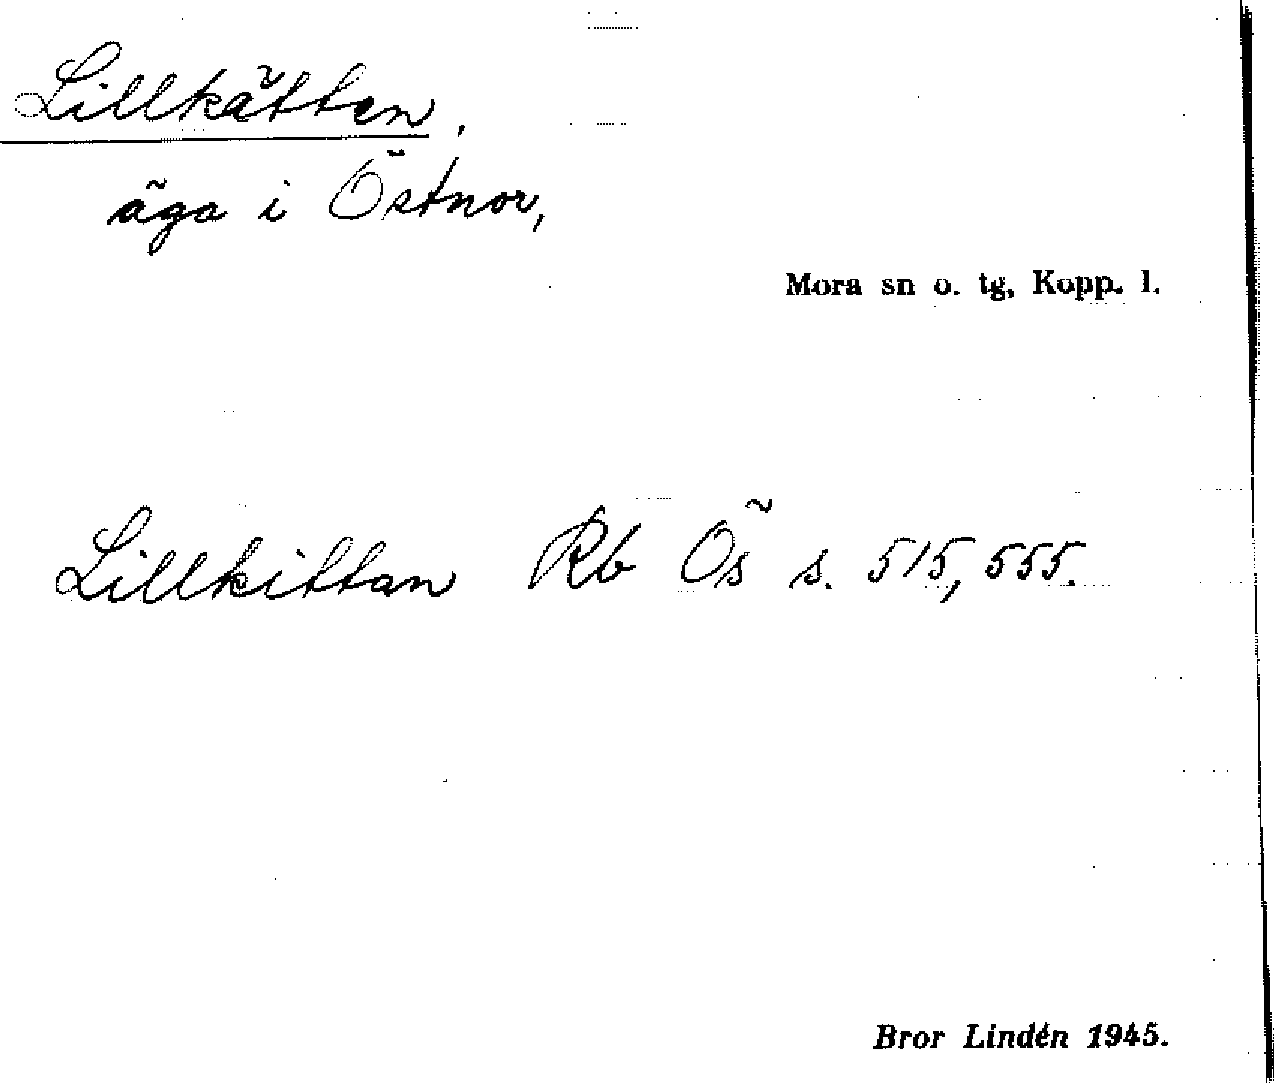 Lillkätten,
äga i Östnor,
Mora sn o. tg, Kopp. l.
Lillkittan Rb Ös s. 515, 555.
Bror Lindén 1945.